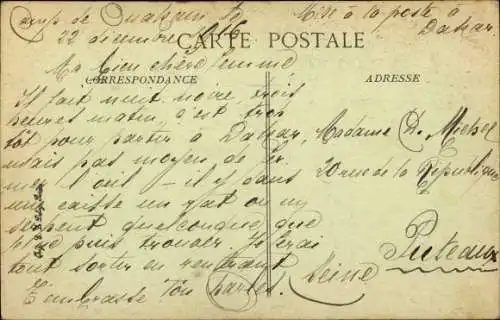 Camp de
22 décembre 1916
Mise à la poste à
Dakar.
CARTE POSTALE
Ma bien chère femme
CORRESPONDANCE
ADRESSE
Il fait nuit noire, trois
heures matin, c'est trop
tôt pour partir à Dakar,
mais pas moyen de
l'œil – il y a dans
une caisse un rat ou un
serpent quelconque que
je ne puis trouver. Je ferai
tout sortir en rentrant
T'embrasse Ton Charles.
Madame D. Michel
20 rue de la République
Puteaux
Seine